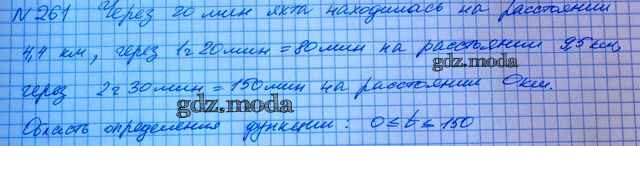 N 261 Через 20 мин яхта находилась на расстоянии
4,4 км, через 1ч 20 мин = 80 мин на расстоянии 9,5 км,
через 2ч 30 мин = 150 мин на расстоянии 0 км.
gdz.moda
gdz.moda
Область определения функции: 0 ≤ t ≤ 150